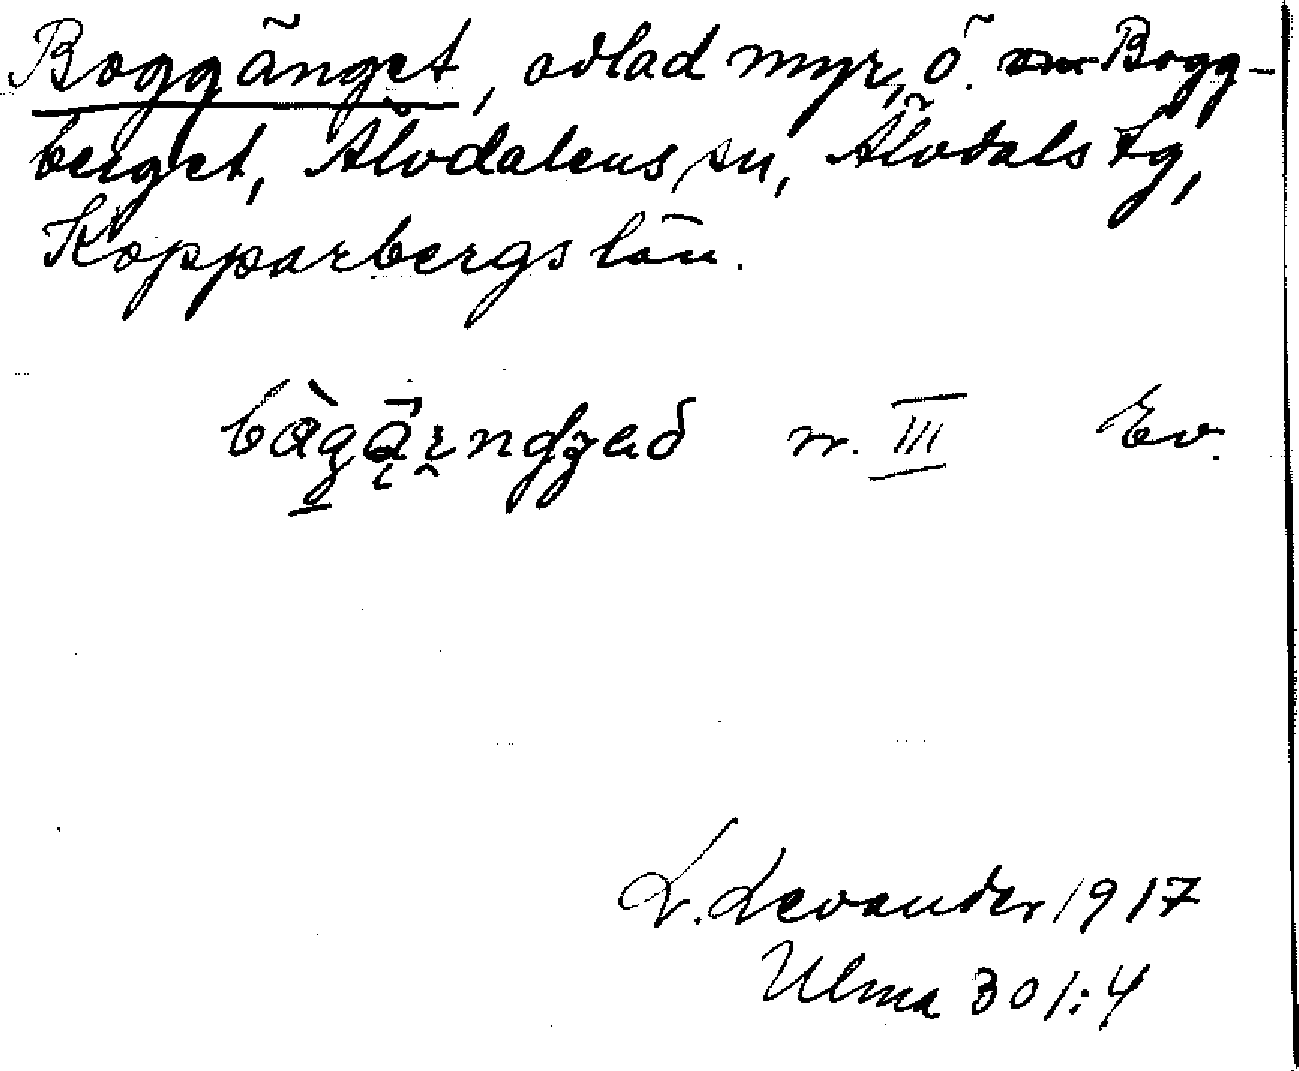 Boggänget, odlad myr, ö. om Bogg-
berget, Älvdalens sn, Älvdals tg,
Kopparbergs län.
n. III Ev.
L. Levander 1917
Ulma 301:4